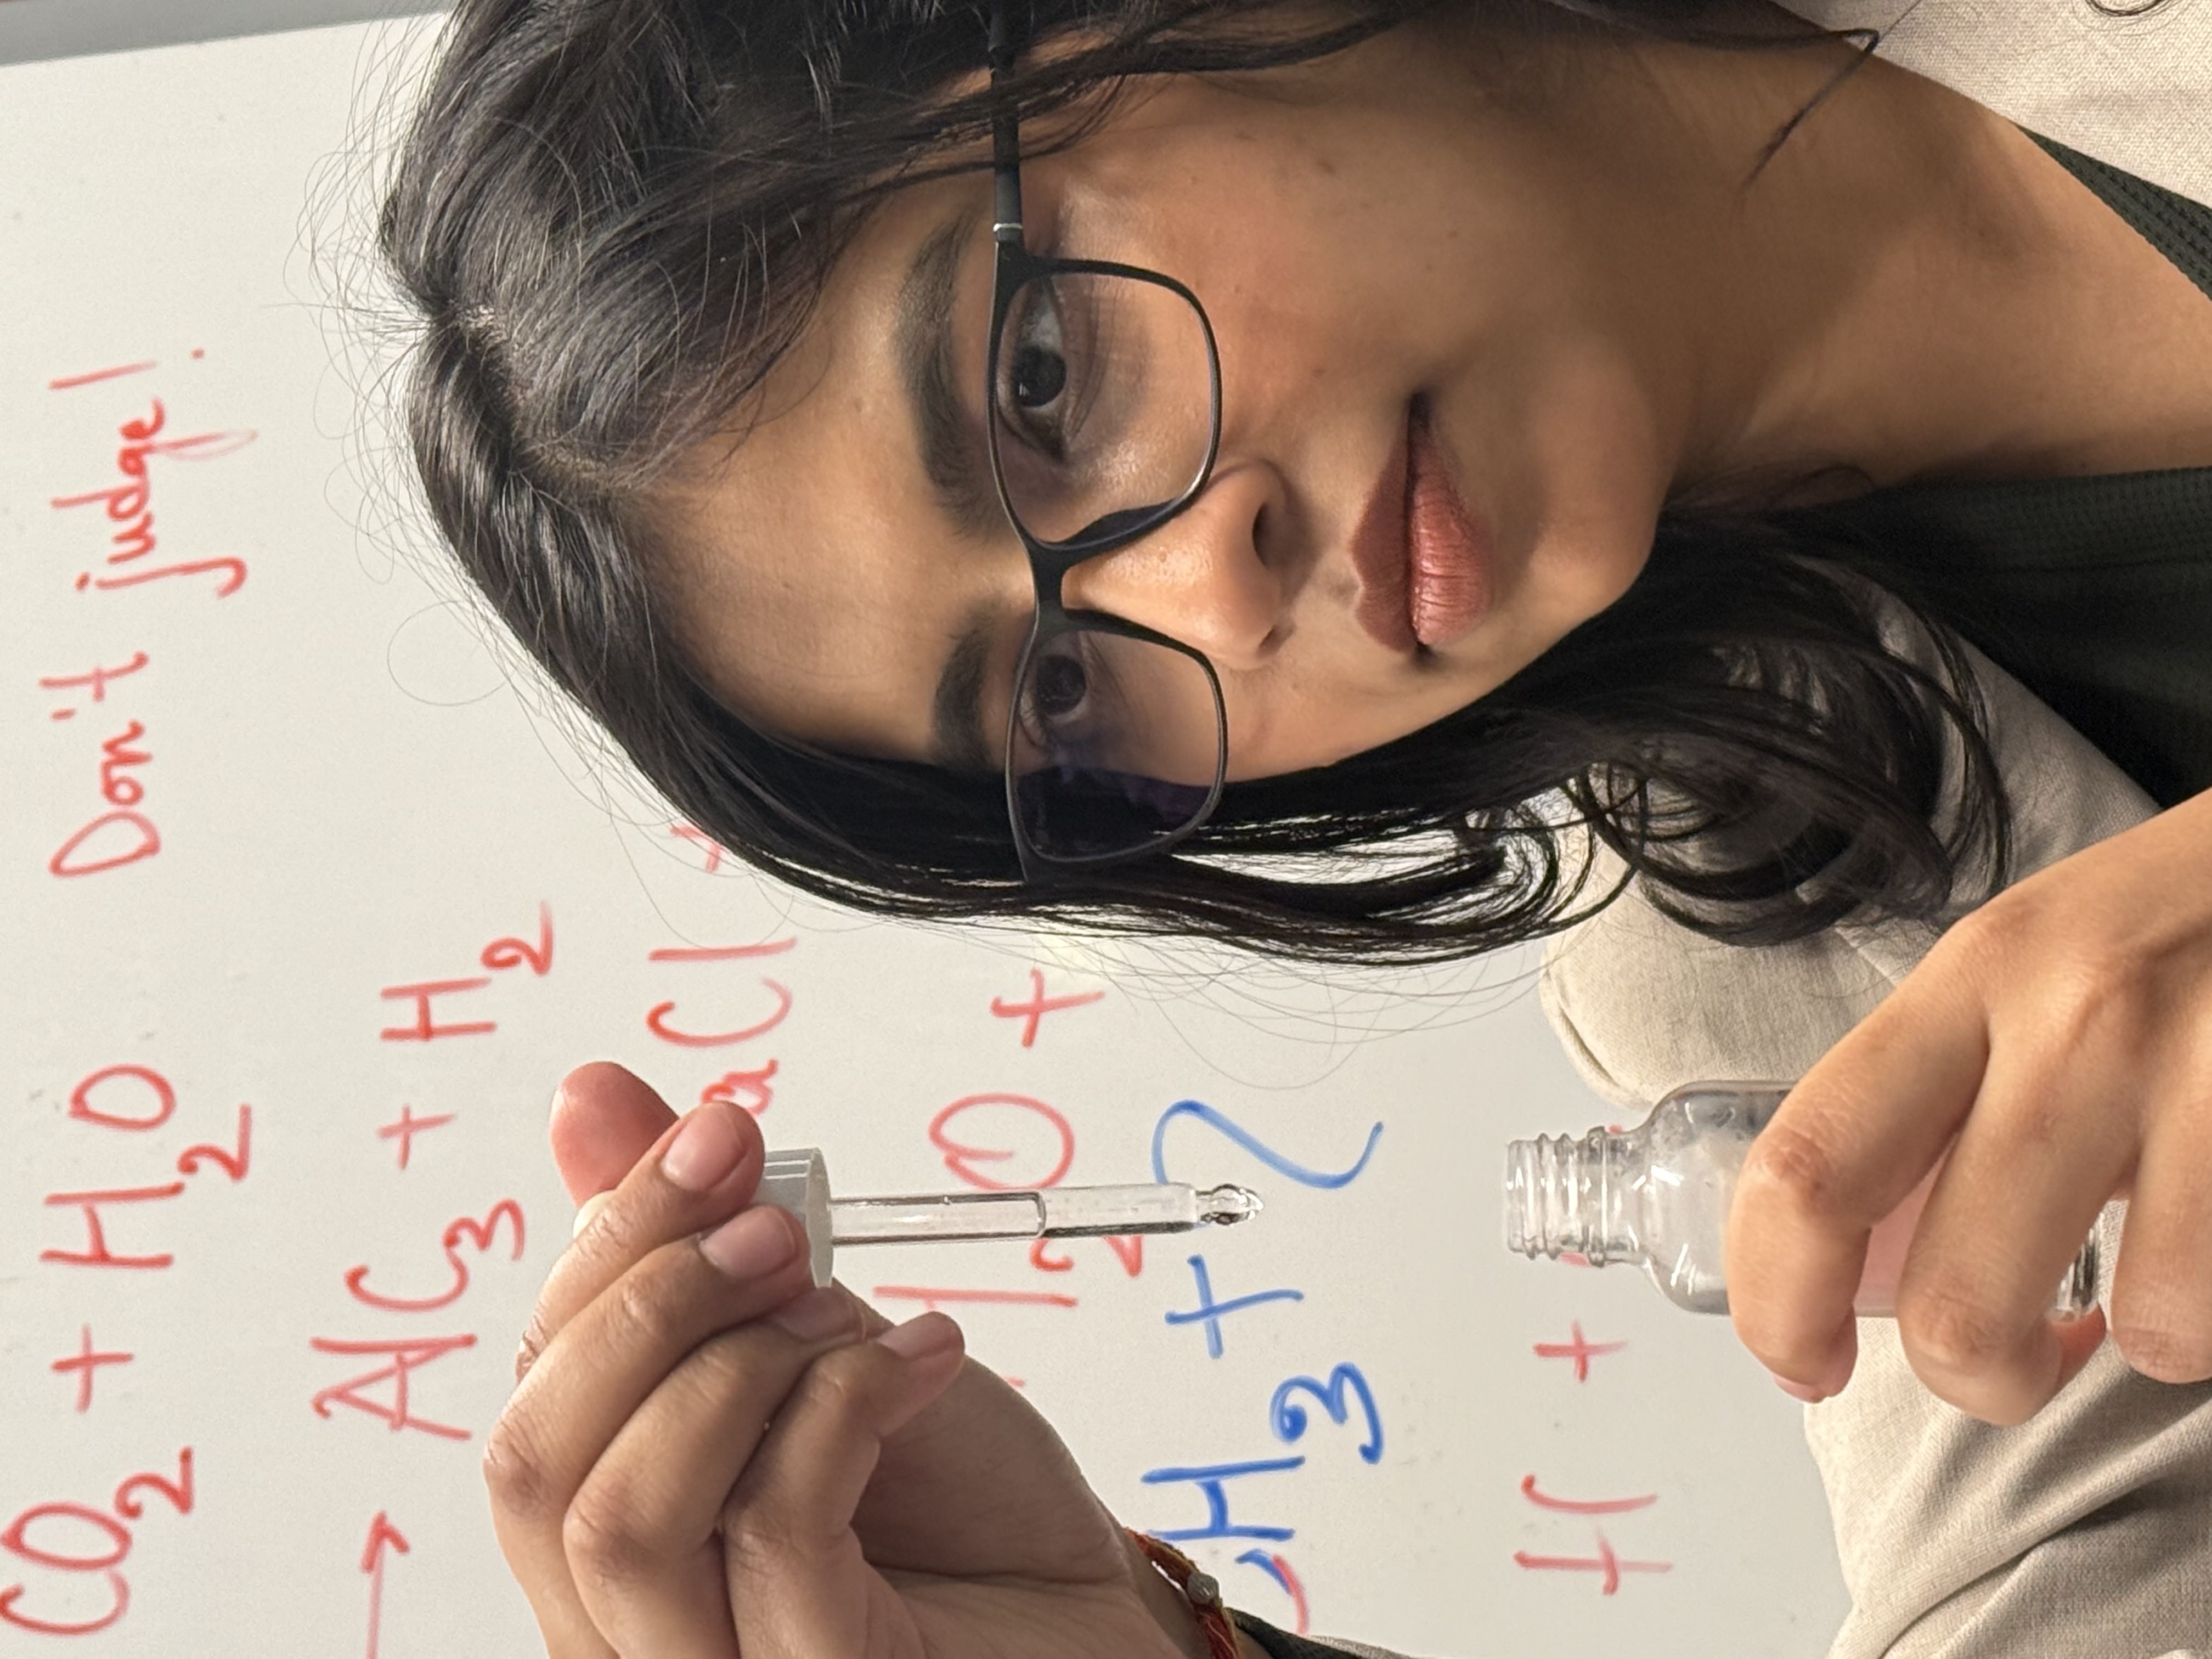 CO₂ + H₂O Don't judge!
→ AlC₃ + H₂
aCl +
H₂O +
H₃ + ?
H +